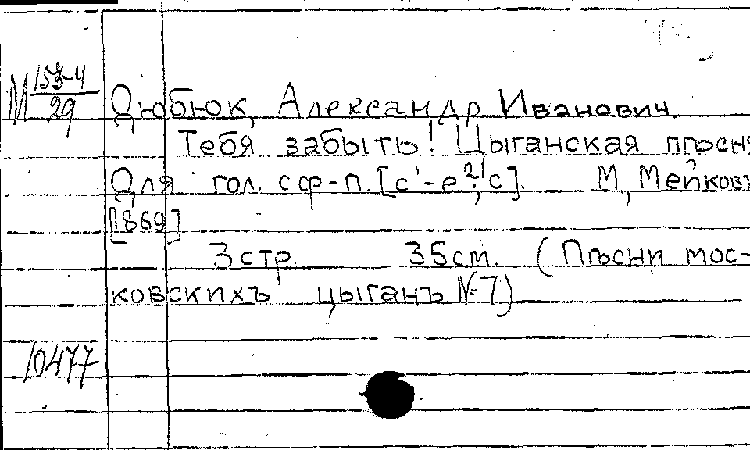 М 153-4/29
Дюбюк, Александр Иванович.
Тебя забыть! Цыганская пѣсня
Для гол. с ф-п. [c'-e²; c]. М, Мейковъ
[1869]
3 стр. 35 см. (Пѣсни мос-
ковскихъ цыганъ № 7)
10477